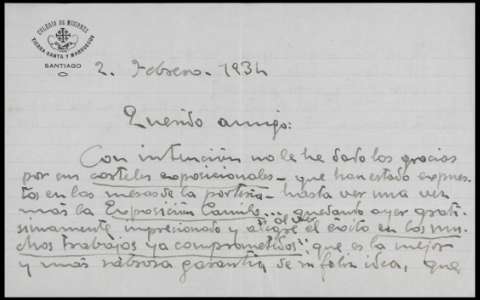 COLEGIO DE MISIONES
TIERRA SANTA Y MARRUECOS
SANTIAGO
2. Febrero. 1934
Querido amigo:
Con intención no le he dado las gracias
por sus carteles exposicionales - que han estado expues-
tos en las mesas de la portería - hasta ver una vez
más la Exposición Camilo... quedando ayer grati-
simamente impresionado y al ver el éxito en los mu-
chos trabajos ya comprometidos: que es la mejor
y más sabrosa garantía de su feliz idea, que